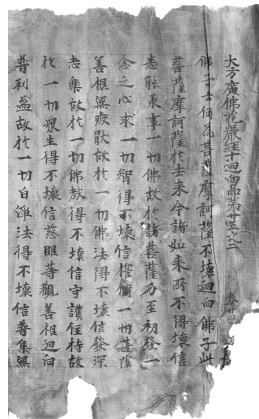 大方廣佛花嚴經十迴向品第廿五之二
佛子云何為菩薩摩訶薩不壞迴向佛子此
菩薩摩訶薩於去來今諸如來所不得壞信
悉能承事一切佛故於諸菩薩乃至初發一
念之心求一切智得不壞信 一切菩薩
善根無疲猒故於一切佛法得不壞信發深
志樂故於一切佛教得不壞信守護住持故
於一切眾生得不壞信慈眼等觀善根迴向
普利益故於一切白淨法得不壞信普集無